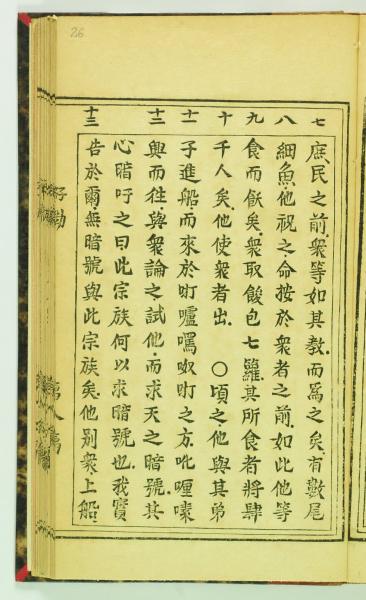 26
七 庶民之前衆等如其教而爲之矣有數尾
八 細魚他祝之命按於衆者之前如此他等
九 食而猒矣衆取餕包七籮其所食者將肆
十 千人矣他使衆者出〇頃之他與其弟
十一 子進船而來於㕶嚧嘪奴㕶之方吪哩嗉
十二 輿而徃與衆論之試他而求天之暗號其
心暗吁之曰此宗族何以求暗號也我實
十三 告於爾無暗號與此宗族矣他別衆上船